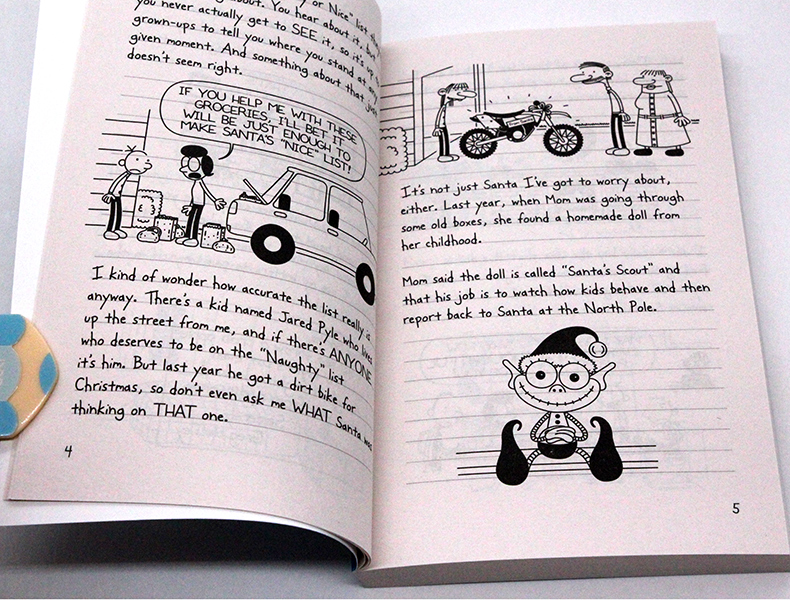 or Nice" list
about. You hear about it, but
you never actually get to SEE it, so it's up
grown-ups to tell you where you stand at any
given moment. And something about that just
doesn't seem right.
IF YOU HELP ME WITH THESE
GROCERIES, I'LL BET IT
WILL BE JUST ENOUGH TO
MAKE SANTA'S "NICE" LIST!
I kind of wonder how accurate the list really is
anyway. There's a kid named Jared Pyle who lives
up the street from me, and if there's ANYONE
who deserves to be on the "Naughty" list
it's him. But last year he got a dirt bike for
Christmas, so don't even ask me WHAT Santa was
thinking on THAT one.
4
It's not just Santa I've got to worry about,
either. Last year, when Mom was going through
some old boxes, she found a homemade doll from
her childhood.
Mom said the doll is called "Santa's Scout" and
that his job is to watch how kids behave and then
report back to Santa at the North Pole.
5